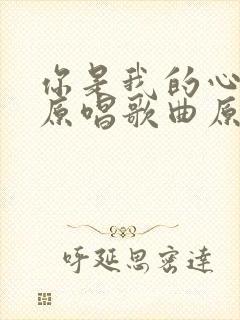 你是我的心
原唱歌曲原
呼延思密達